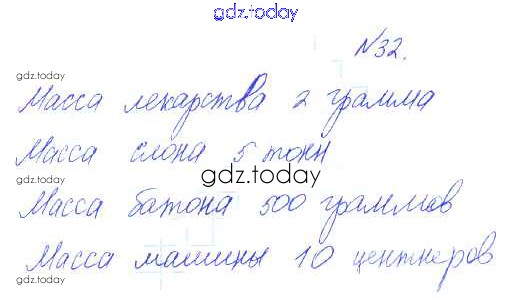 gdz.today
№32.
gdz.today
Масса лекарства 2 грамма
Масса слона 5 тонн
gdz.today
gdz.today
Масса батона 500 граммов
Масса машины 10 центнеров
gdz.today